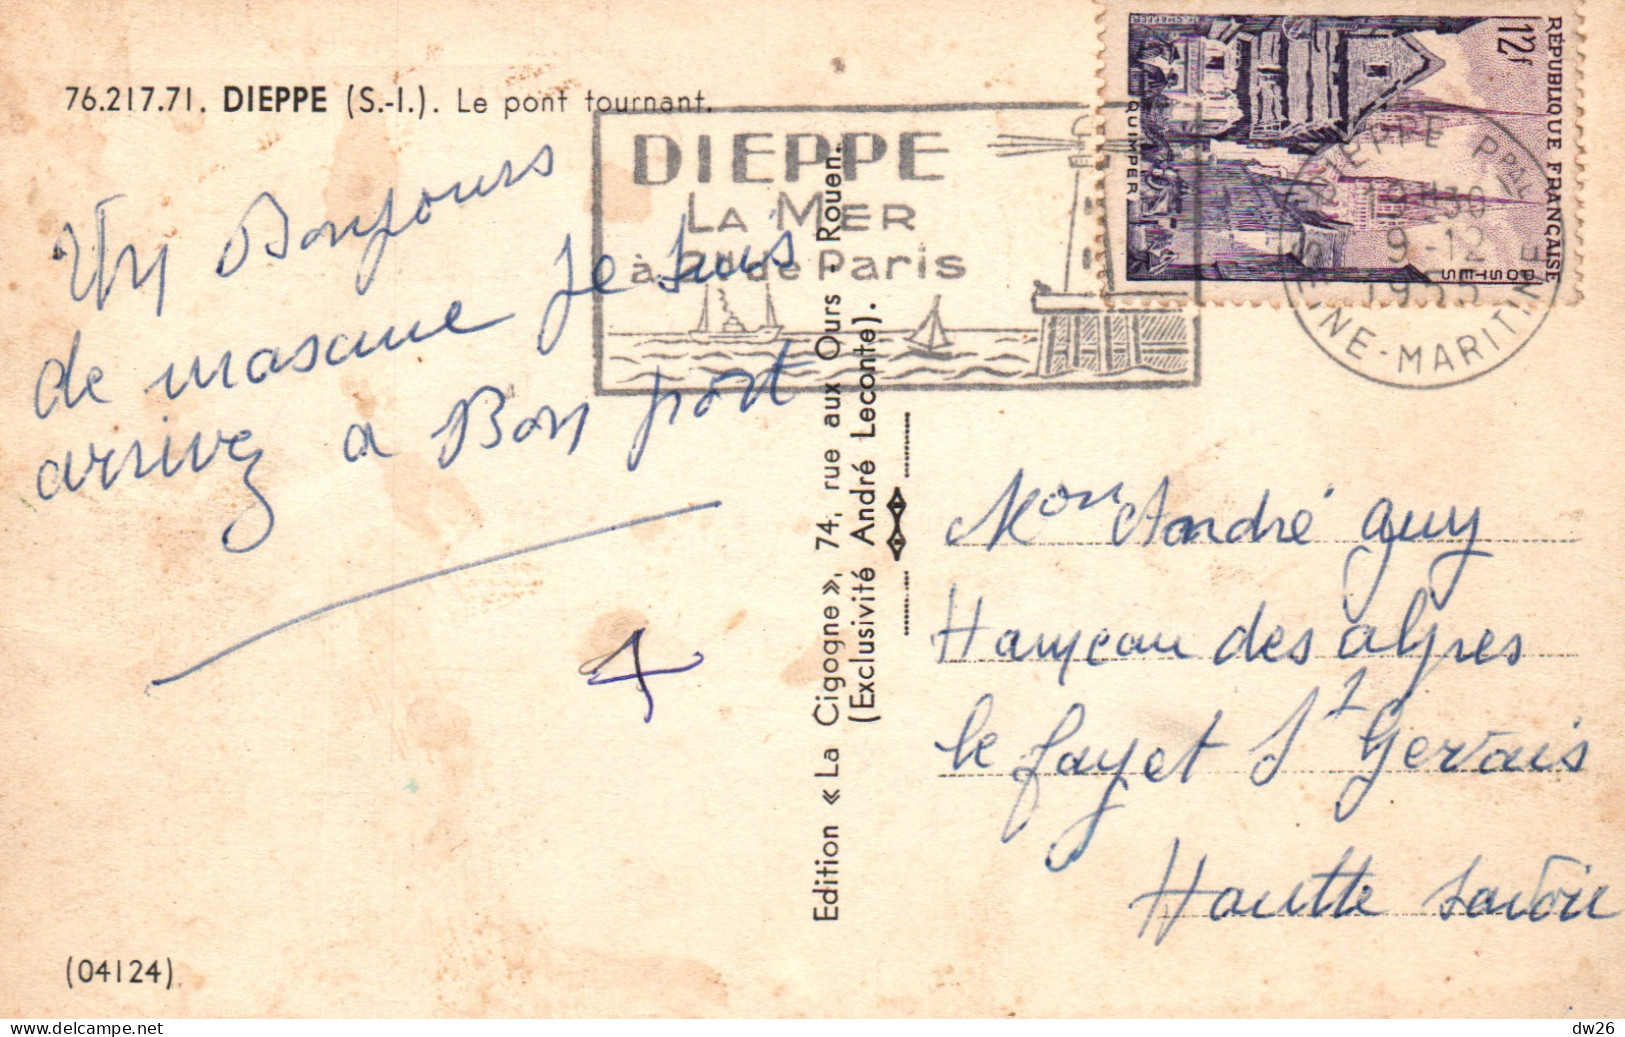 76.217.71. DIEPPE (S.-I.). Le pont tournant.
Un Bonjours
de masane je suis
arrivez a Bon port
DIEPPE
LA MER
à 2H de Paris
RÉPUBLIQUE FRANÇAISE
12f
QUIMPER
POSTES
DIEPPE PPAL
19H30
9-12
1955
SEINE-MARITIME
Edition « La Cigogne », 74, rue aux Ours - Rouen.
(Exclusivité André Leconte).
Mon André guy
Hameau des alpes
le fayet St Gervais
Hautte savoie
(04124)
delcampe.net
dw26